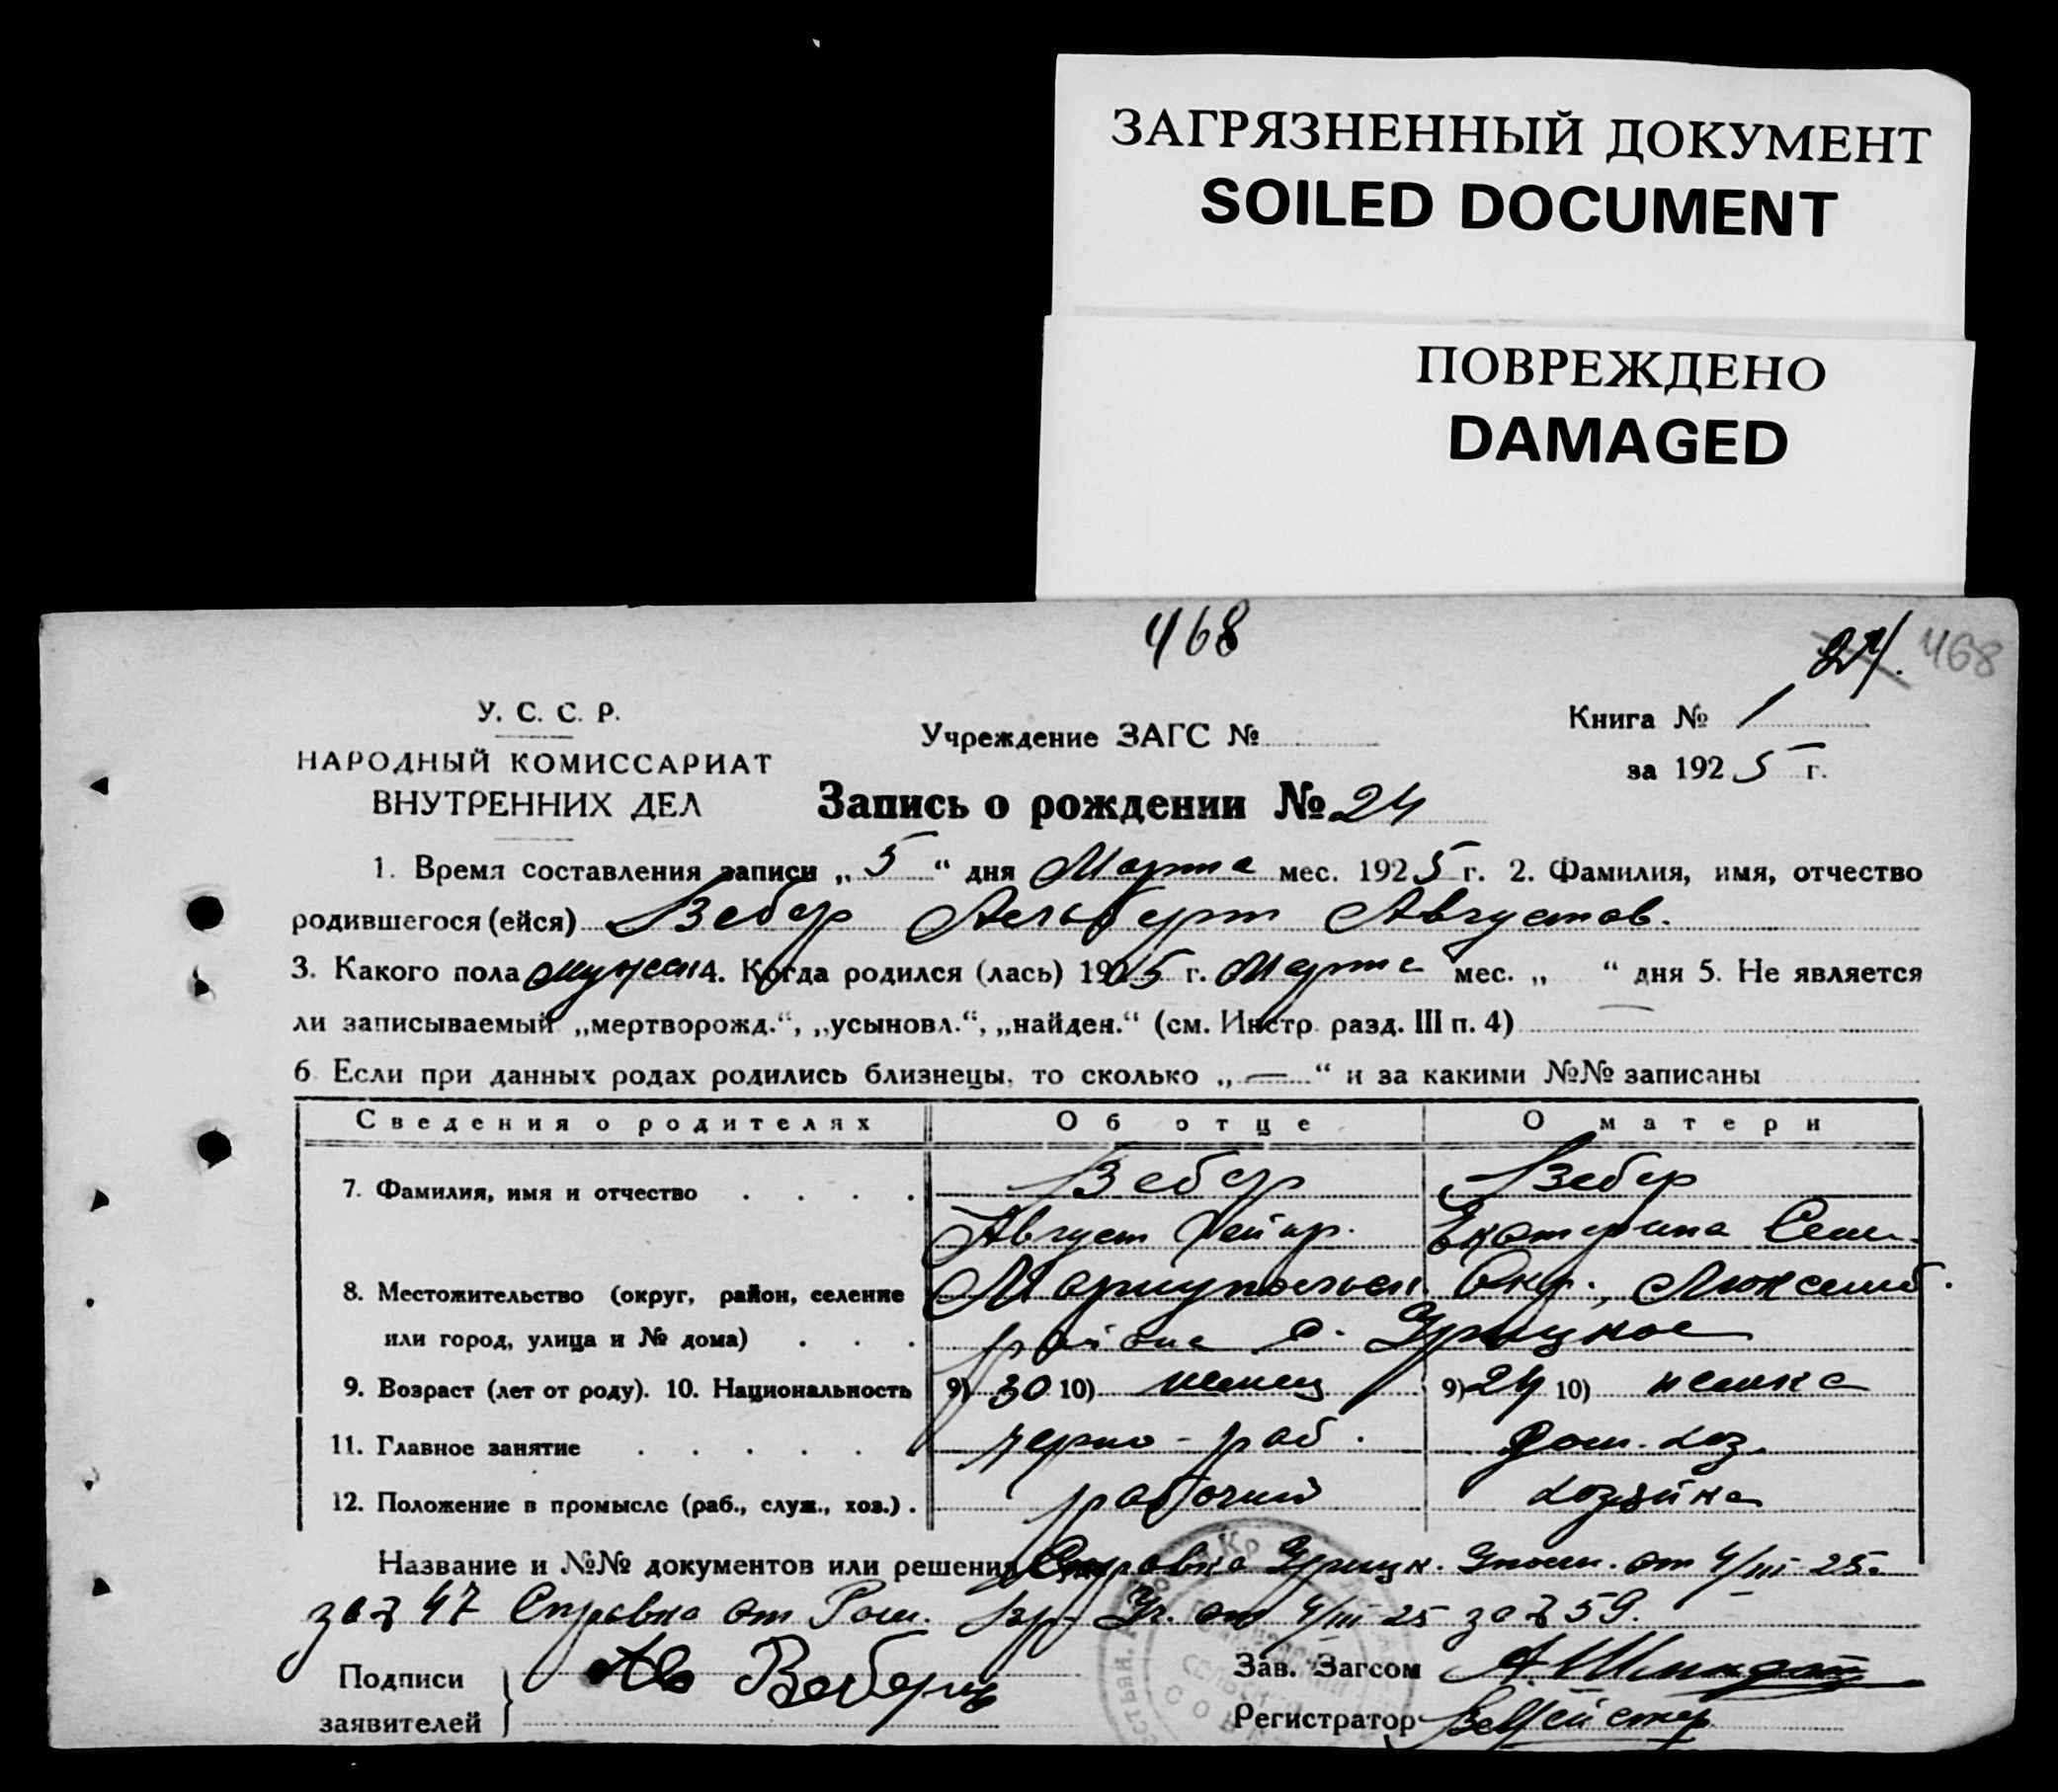 ЗАГРЯЗНЕННЫЙ ДОКУМЕНТ
SOILED DOCUMENT
ПОВРЕЖДЕНО
DAMAGED
468
24. 468
У. С. С. Р.
НАРОДНЫЙ КОМИССАРИАТ
ВНУТРЕННИХ ДЕЛ
Учреждение ЗАГС №
Книга № 1
за 1925 г.
Запись о рождении № 24
1. Время составления записи „5“ дня Марта мес. 1925 г. 2. Фамилия, имя, отчество
родившегося (ейся) Вебер Альберт Августов.
3. Какого пола мужск 4. Когда родился (лась) 1925 г. Марта мес. „ “ дня 5. Не является
ли записываемый „мертворожд.“, „усыновл.“, „найден.“ (см. Инстр. разд. III п. 4)
6 Если при данных родах родились близнецы, то сколько „—“ и за какими №№ записаны
Сведения о родителях Об отце О матери
7. Фамилия, имя и отчество Вебер Вебер
Август Екатерина Сем.
8. Местожительство (округ, район, селение Мариупольск. Окр., Люксемб.
или город, улица и № дома) района с. Урицкое
9. Возраст (лет от роду). 10. Национальность 9) 30 10) немец 9) 24 10) немка
11. Главное занятие черно-раб. Дом. хоз.
12. Положение в промысле (раб., служ., хоз.) рабочий хозяйка
Название и №№ документов или решения Справка Урицк. от 4/III-25.
за № 47 Справка от от 4/III 25 за № 59.
Подписи
заявителей
Ав Вебер
Зав. Загсом
Регистратор